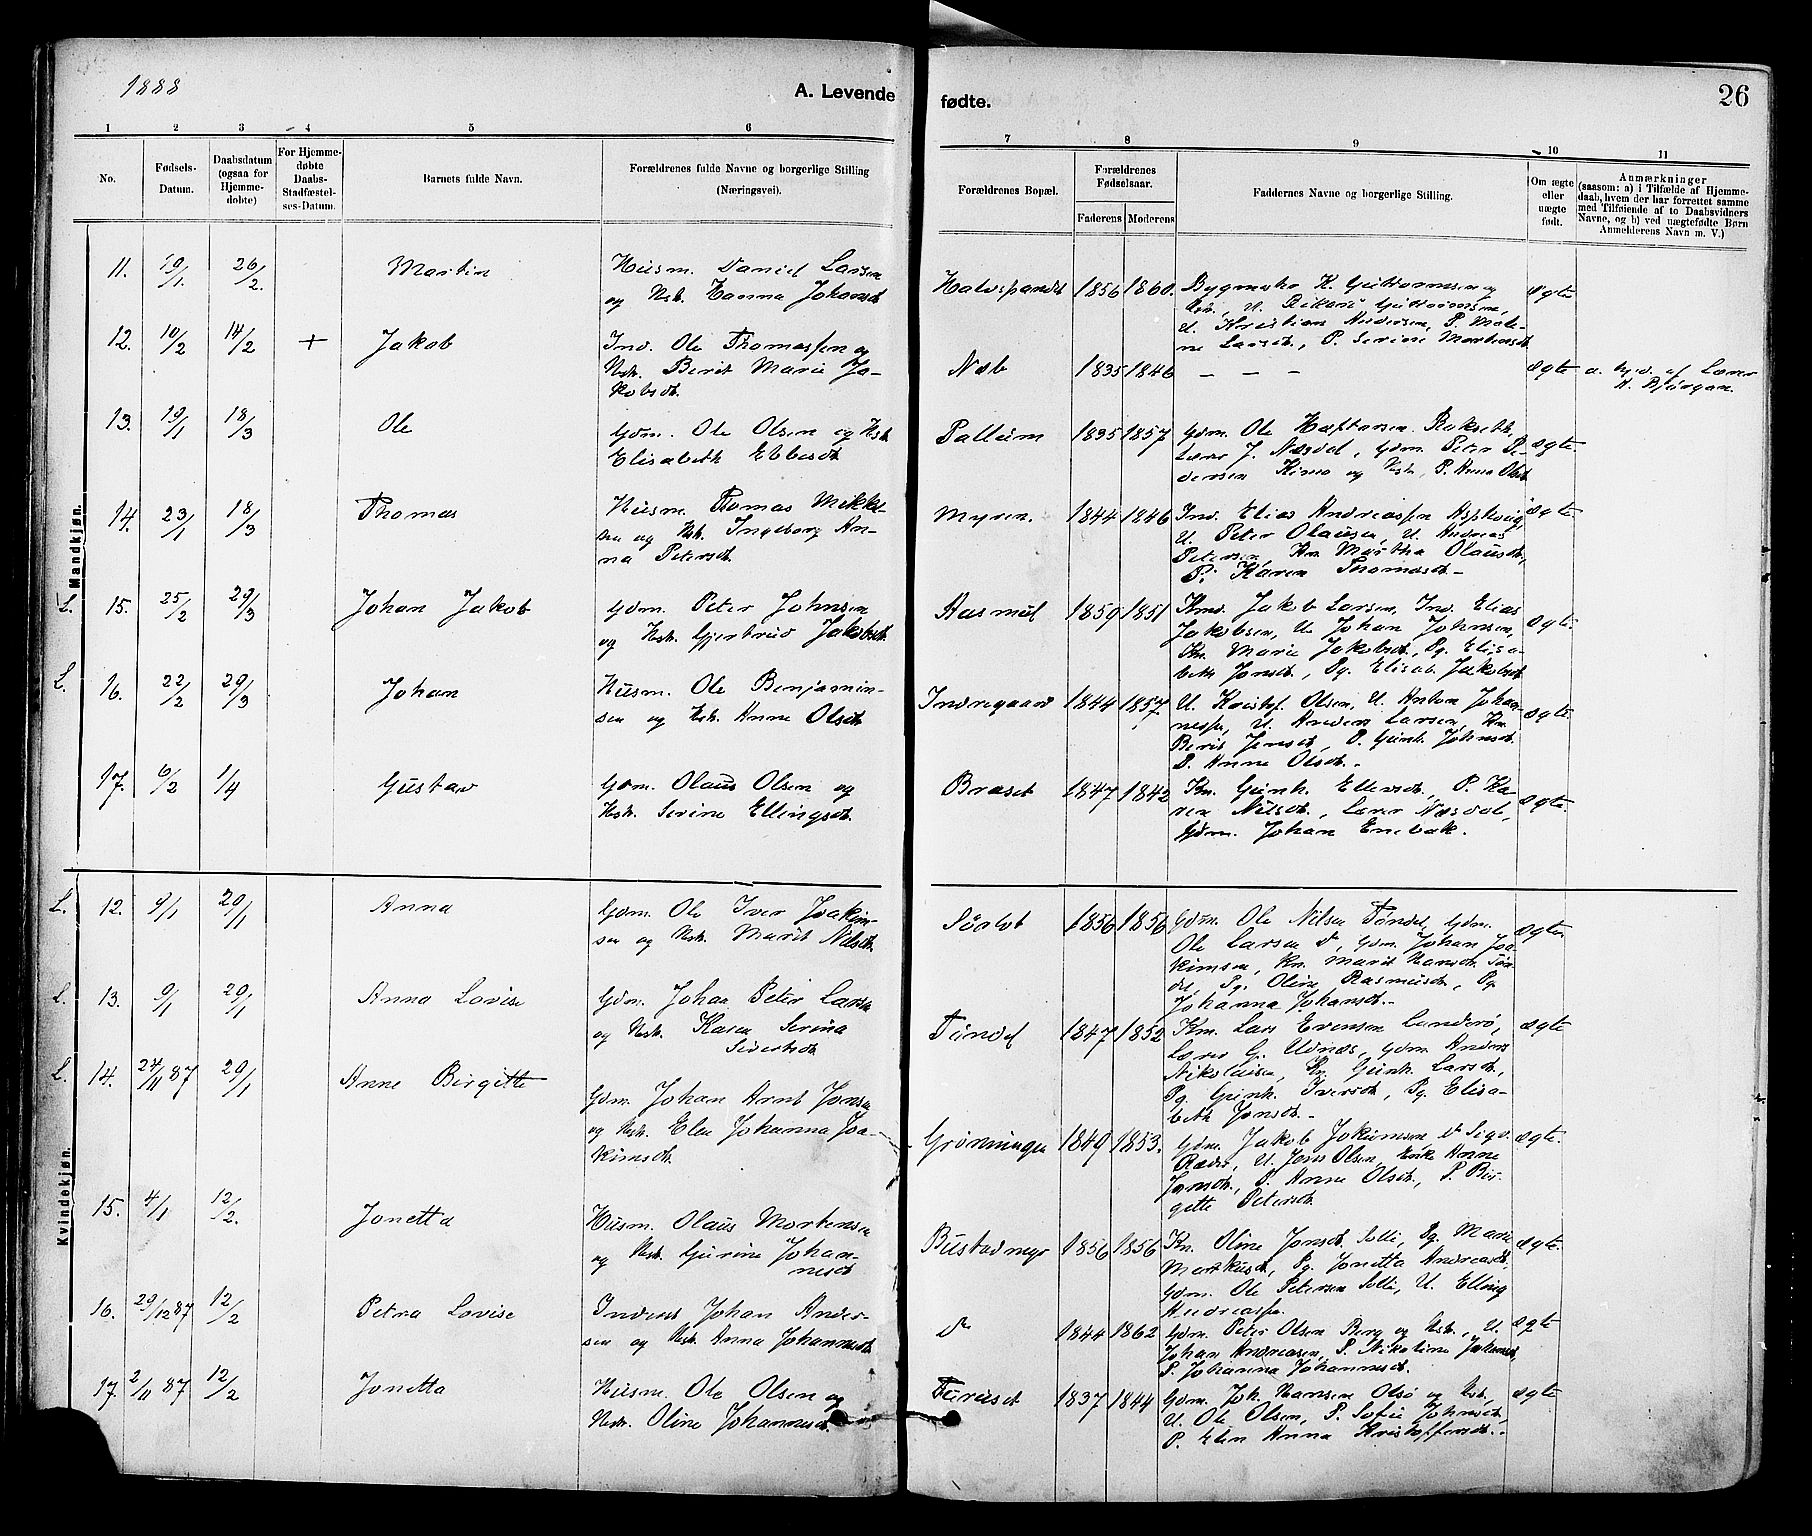 1888
A. Levende fødte.
26
1 2 3 4 5 6 7 8 9 10 11
No.
Fødsels-Datum.
Daabsdatum (ogsaa for Hjemmedøbte)
For Hjemmedøbte Daabs-Stadfæstelses-Datum.
Barnets fulde Navn.
Forældrenes fulde Navne og borgerlige Stilling (Næringsvei).
Forældrenes Bopæl.
Forældrenes Fødselsaar.
Faderens Moderens
Faddernes Navne og borgerlige Stilling.
Om ægte eller uægte født.
Anmærkninger (saasom: a) i Tilfælde af Hjemmedaab, hvem der har forrettet samme med Tilføiende af to Daabsvidners Navne, og b) ved uægtefødte Børn Anmelderens Navn m. V.)
Mandkjøn.
11. 19/1 26/2. Martin
Husm. Daniel Larsen
og Hst. Hanna Johansdt.
1856 1860.
Kristian Andersen, P. Mali-
ne Larsdt., P. Serine Martinsdt.
ægte
12. 10/2 14/2 + Jakob
Ind. Ole Thomassen og
Hst. Berit Marie Ja-
kobsdt.
Næb 1835 1846 – – –
ægte a. af Lærer
H. Bjørgan.
13. 19/1 18/3 Ole
Gdm. Ole Olsen og Hst.
Elisabeth Ebbesdt.
Pallum 1835 1857
Gdm. Ole Hoftansen Rokseth,
Lærer J. Næsdal, Gdm. Peter Pe-
dersen Kimo og Hst., P. Anna Olsdt.
ægte.
14. 23/1 18/3 Thomas
Husm. Thomas Mikkel-
sen og Hst. Ingeborg An-
na Petersdt.
Myren. 1844 1846
Ind. Elias Andreassen Aspleveig,
U. Peter Olausen, U. Andreas
Petersen, Kn. Martha Olausdt.
P. Karen Thomasdt. –
ægte.
L. 15. 25/2 29/3 Johan Jakob
Gdm. Peter Johnsen
og Hst. Gjertrud Jakobsdt.
Aasmul 1859 1851
Kmd. Jakob Larsen, Ind. Elias
Jakobsen, U. Johan Johnsen,
Kn. Marie Jakobsdt., Pg. Elisa-
beth Jonsdt., Pg. Elisab. Jakobsdt.
ægte.
L. 16. 22/2 29/3 Johan
Husm. Ole Benjamin-
sen og Hst. Anne Olsdt.
Indregaard 1844 1857
U. Kristof. Olsen, U. Anton Johan-
nessen, U. Anders Larsen, Kn.
Berit Jensdt., P. Gunh. Johnsdt.
P. Anne Olsdt. –
ægte.
17. 6/2 1/4 Gustav
Gdm. Olaus Olsen og
Hst. Serine Ellingsdt.
Bræset 1847 1842
Kn. Gunh. Ellevsdt., P. Ka-
ren Nilsdt., Lærer Næsdal,
Gdm. Johan Enebak.
ægte.
Kvindekjøn.
L. 12. 9/1 29/1 Anna
Gdm. Ole Iver Joakim-
sen og Hst. Marit Nilsdt.
1856 1856
Gdm. Ole Nilsen Tøndel, Gdm.
Ole Larsen d, Gdm. Johan Joa-
kimsen, Kn. Marit Hansdt. Tøn-
del, Pg. Oline Rasmusdt., Pg.
Johanna Johansdt. –
ægte.
L. 13. 9/1 29/1 Anna Lovise
Gdm. Johan Peter Larsen
og Hst. Karen Serina
Sivertsdt.
Tøndel 1847 1852
Km. Lars Evensen Landerø,
Lærer G. Udnæs, Gdm. Anders
Nikolaisen, Kn. Gunh. Larsdt.,
Pg. Gunh. Iversdt., Pg. Elisa-
beth Jonsdt. –
ægte
L. 14. 27/11 87 29/1 Anne Birgitte
Gdm. Johan Arnt Jonsen
og Hst. Elen Johanna Joa-
kimsdt.
Grønningen 1849 1853.
Gdm. Jakob Jokumsen, d Sigv.
Rædes, U. Jens Olsen, Enke Anne
Jonsdt., P. Anne Olsdt., P. Bir-
gitte Petersdt.
ægte.
15. 4/1 12/2. Jonetta
Husm. Olaus Mortensen
og Hst. Gurine Johan-
nesdt.
1856 1856
Kn. Oline Jonsdt. Solli, Pg. Marie
Markusdt., Pg. Jonetta Andreasdt.
Gdm. Ole Petersen Solli, U. Elling
Andreassen.
ægte.
16. 29/12 87 12/2 Petra Lovise
Inderst Johan Ander-
sen og Hst. Anna Johannesdt.
d 1844 1862
Gdm. Peter Olsen Berg og Hst., U.
Johan Andreassen, P. Nikoline Johansdt.
P. Johanna Johannesdt.
ægte
17. 2/11 87 12/2 Jonetta
Husm. Ole Olsen og
Hst. Oline Johannesdt.
Furuset 1837 1844
Gdm. Joh. Hansen Olsø og Hst.,
U. Ole Olsen, P. Sofie Johnsdt.
P. Elen Anna Kristoffersdt. –
ægte